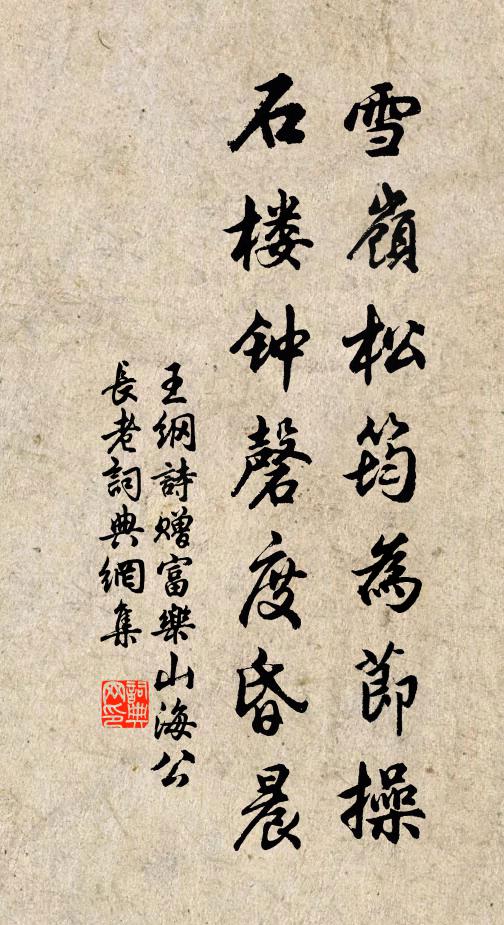 雪嶺松筠為節操
石楼钟磬度昏晨
王纲詩赠富樂山海公
長老詞典網集
詞典网印